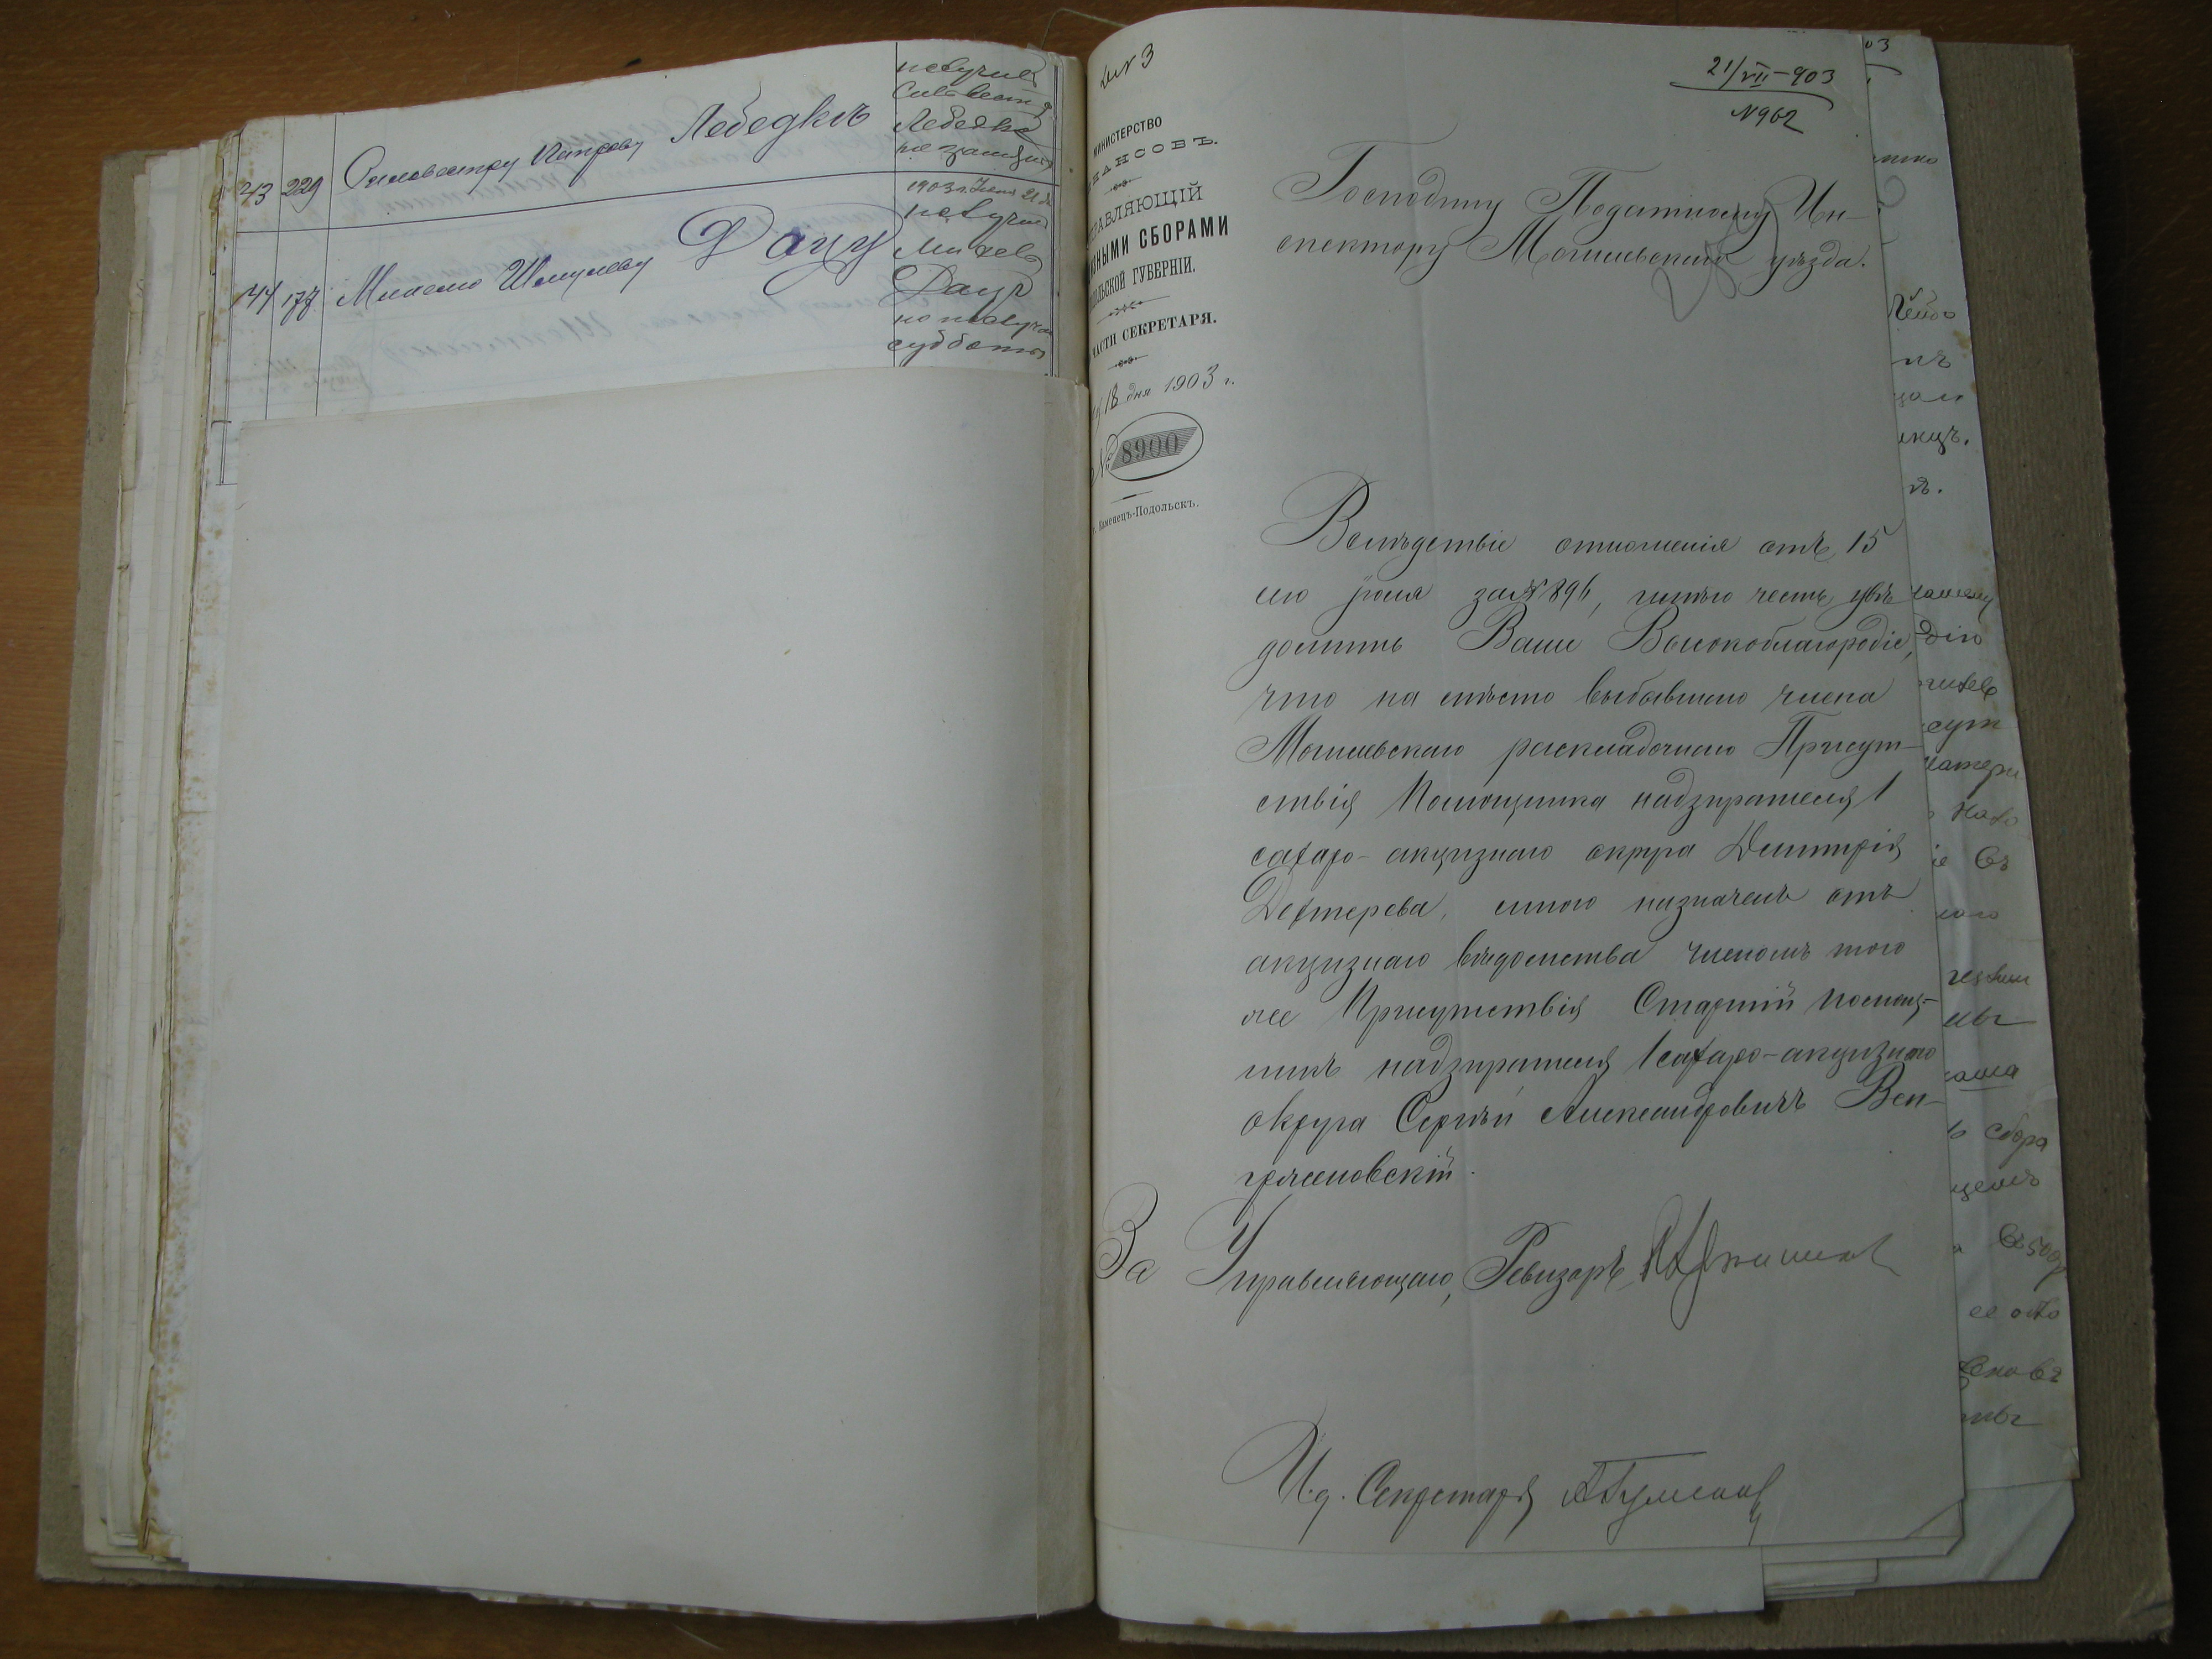 43 229 Силовестру Петрову Лебедкѣ
получилъ
Силвестръ
Лебедка
44 177 Михелю Шмулеву Дацу
1903 г. Іюля 21 дн
получилъ
Михель
Дацъ
субботы
21/VII-903
№ 962
МИНИСТЕРСТВО
НАНСОВЪ.
РАВЛЯЮЩІЙ
НЫМИ СБОРАМИ
ОЛЬСКОЙ ГУБЕРНІИ.
ЧАСТИ СЕКРЕТАРЯ.
18 дня 1903 г.
№ 8900
г. Каменецъ-Подольскъ.
Господину Податному Ин-
спектору Могилевскаго уѣзда.
Вслѣдствіе отношенія отъ 15
сего іюля за № 896, имѣю честь увѣ-
домить Ваше Высокоблагородіе,
что на мѣсто выбывшаго члена
Могилевскаго раскладочнаго Присут-
ствія Помощника надзирателя 1
сахаро-акцизнаго округа Дмитрія
Дехтерева, мною назначенъ отъ
акцизнаго вѣдомства членомъ того
же Присутствія Старшій помощ-
никъ надзирателя 1 сахаро-акцизнаго
округа Сергѣй Александровичъ Вен-
грженовскій.
За Управляющаго, Ревизоръ
И.д. Секретаря